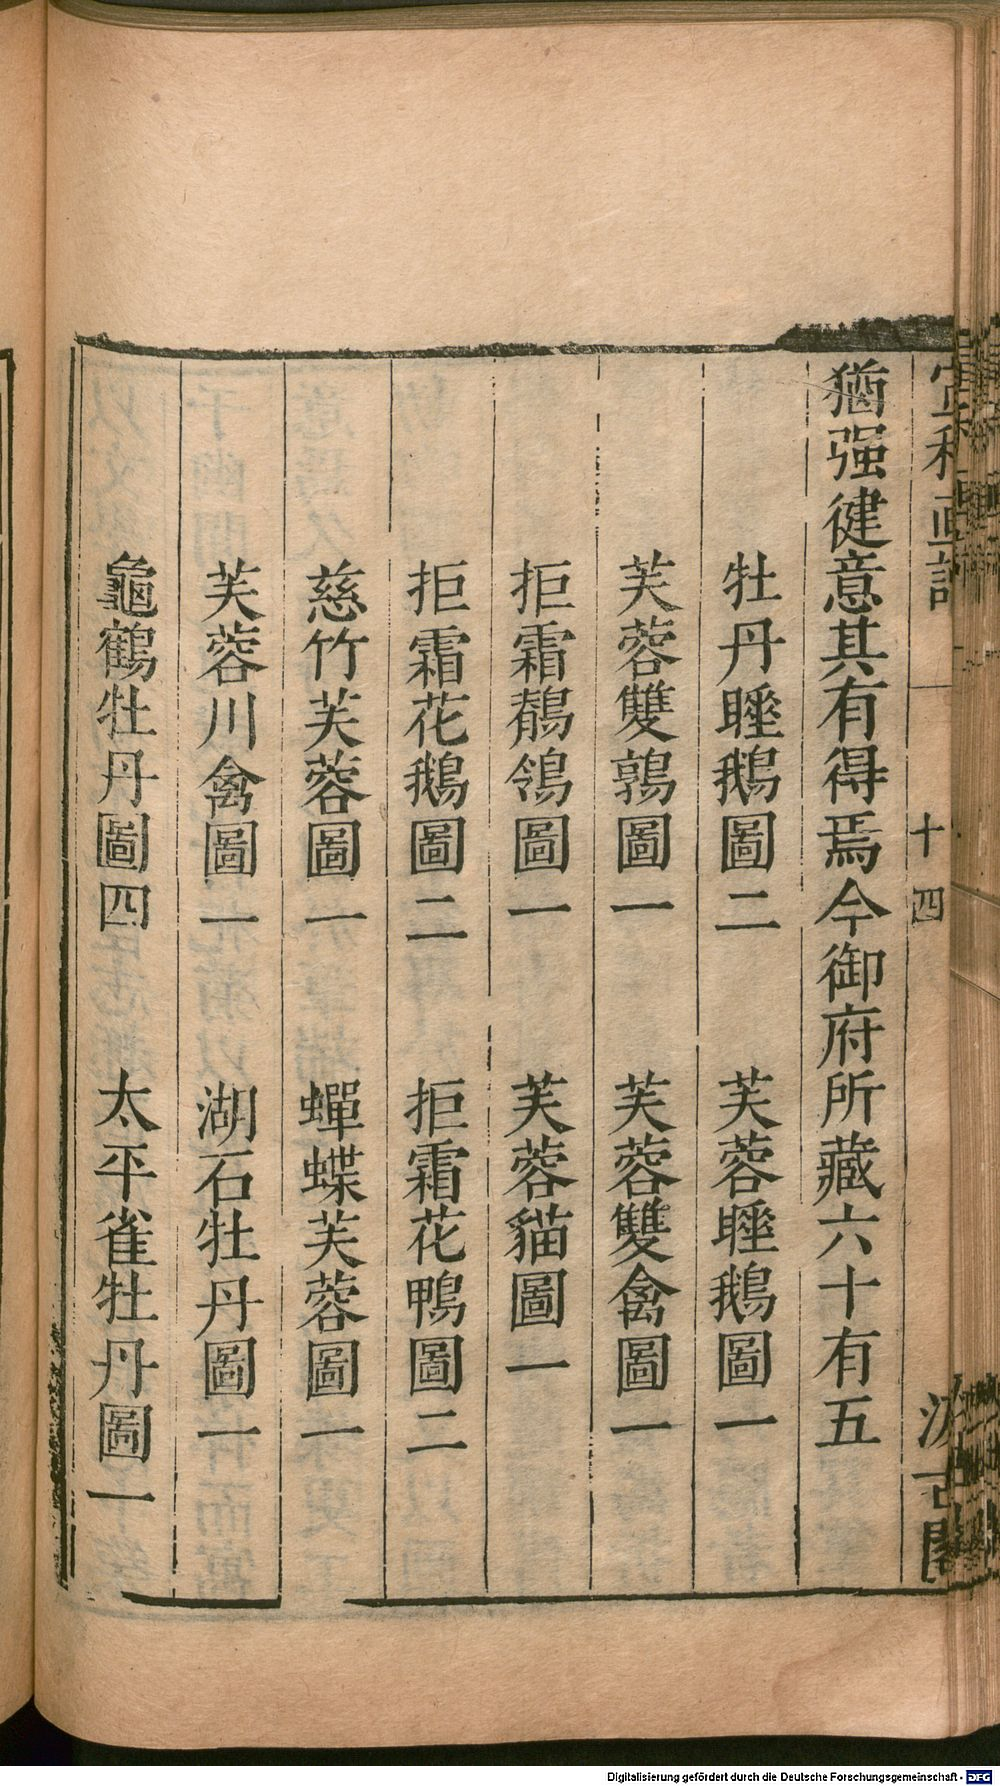 宣和畫譜
十四
汲古閣
猶强健意其有得焉今御府所藏六十有五
牡丹睡鵝圖二　芙蓉睡鵝圖一
芙蓉雙鶉圖一　芙蓉雙禽圖一
拒霜鶺鴒圖一　芙蓉貓圖一
拒霜花鵝圖二　拒霜花鴨圖二
慈竹芙蓉圖一　蟬蝶芙蓉圖一
芙蓉川禽圖一　湖石牡丹圖一
龜鶴牡丹圖四　太平雀牡丹圖一
Digitalisierung gefördert durch die Deutsche Forschungsgemeinschaft - DFG